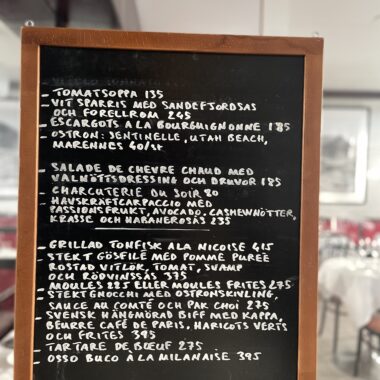 - TOMATSOPPA 135
- VIT SPARRIS MED SANDEFJORDSAS
OCH FORELLROM 245
- ESCARGOTS A LA BOURGUIGNONNE 185
- OSTRON: SENTINELLE, UTAH BEACH,
MARENNES 40/st
- SALADE DE CHEVRE CHAUD MED
VALNÖTTSDRESSING OCH DRUVOR 185
- CHARCUTERIE DU SOIR 80
- HAVSKRÄFTCARPACCIO MED
PASSIONSFRUKT, AVOCADO, CASHEWNÖTTER,
KRASSE OCH HABANEROSÅS 235
- GRILLAD TONFISK ALA NICOISE 415
- STEKT GÖSFILÉ MED POMME PUREE
ROSTAD VITLÖK, TOMAT, SVAMP
OCH RÖDVINSSÅS 375
- MOULES 225 ELLER MOULES FRITES 275
- STEKT GNOCCHI MED OSTRONSKIVLING,
SAUCE AU COMTÉ OCH PAK CHOI 275
- SVENSK HÄNGMÖRAD BIFF MED KAPPA,
BEURRE CAFÉ DE PARIS, HARICOTS VERTS
OCH FRITES 395
- TARTARE DE BŒUF 275
- OSSO BUCO À LA MILANAISE 395